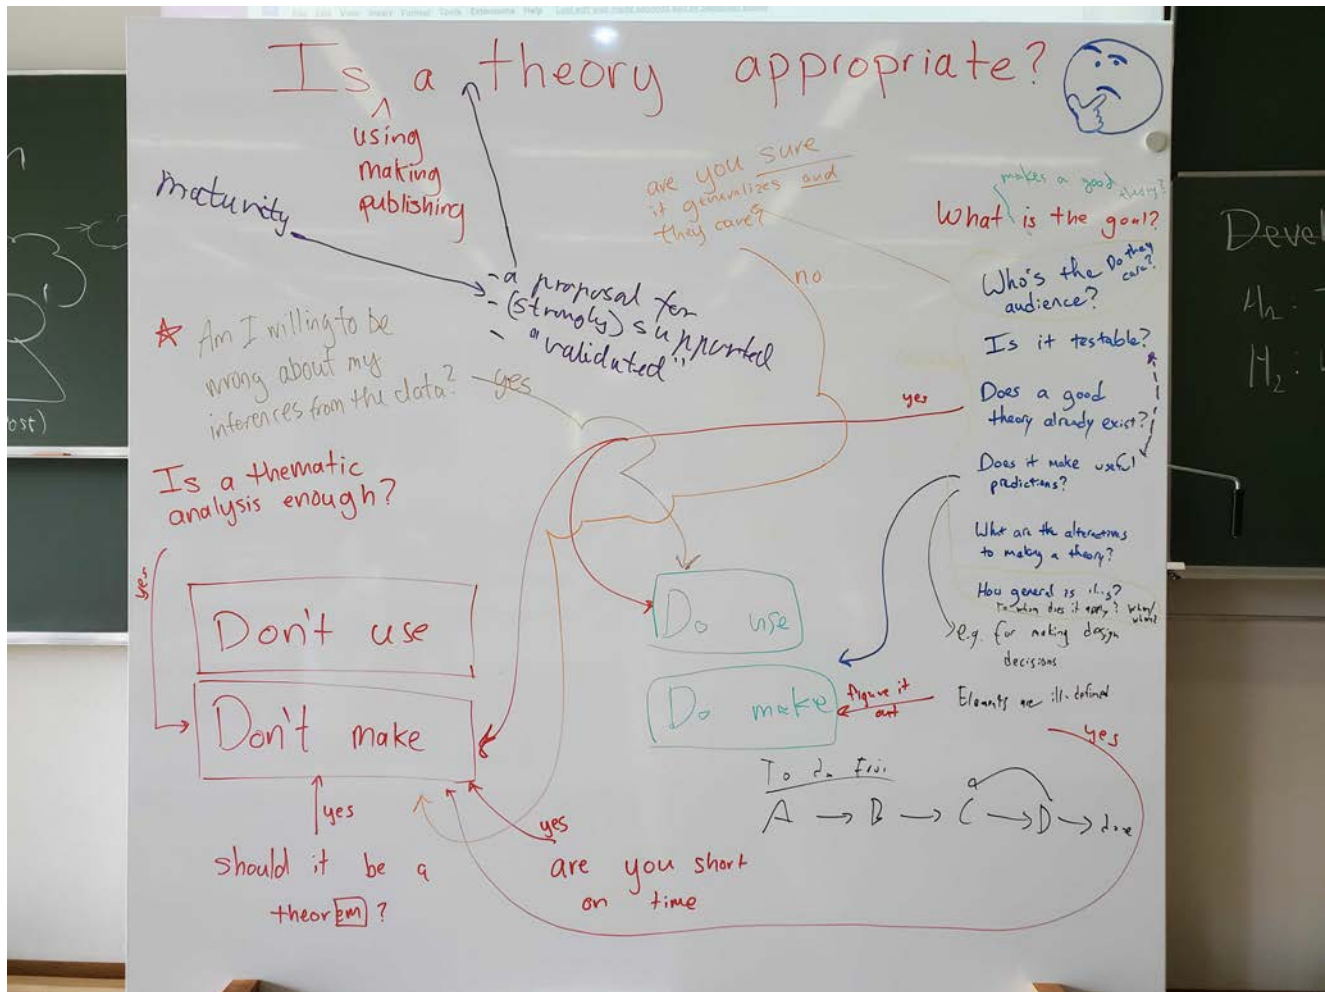 File Edit View Insert Format Tools Extensions Help
Is a theory appropriate?
^
using
making
publishing
maturity
- a proposal for
- (strongly) supported
- "validated"
are you sure
it generalizes and
they care?
no
makes a good theory?
What is the goal?
Who's the
audience?
Do they
care?
Is it testable?
Does a good
theory already exist?
yes
Does it make useful
predictions?
What are the alternatives
to making a theory?
How general is this?
To whom does it apply? When/
where?
e.g. for making design
decisions
Elements are ill-defined
figure it
out
yes
Am I willing to be
wrong about my
inferences from the data?
yes
Is a thematic
analysis enough?
yes
Don't use
Don't make
Do use
Do make
yes
should it be a
theorem?
yes
are you short
on time
To do
A → B → C → D → done
Devel
H₁:
H₂:
ost)